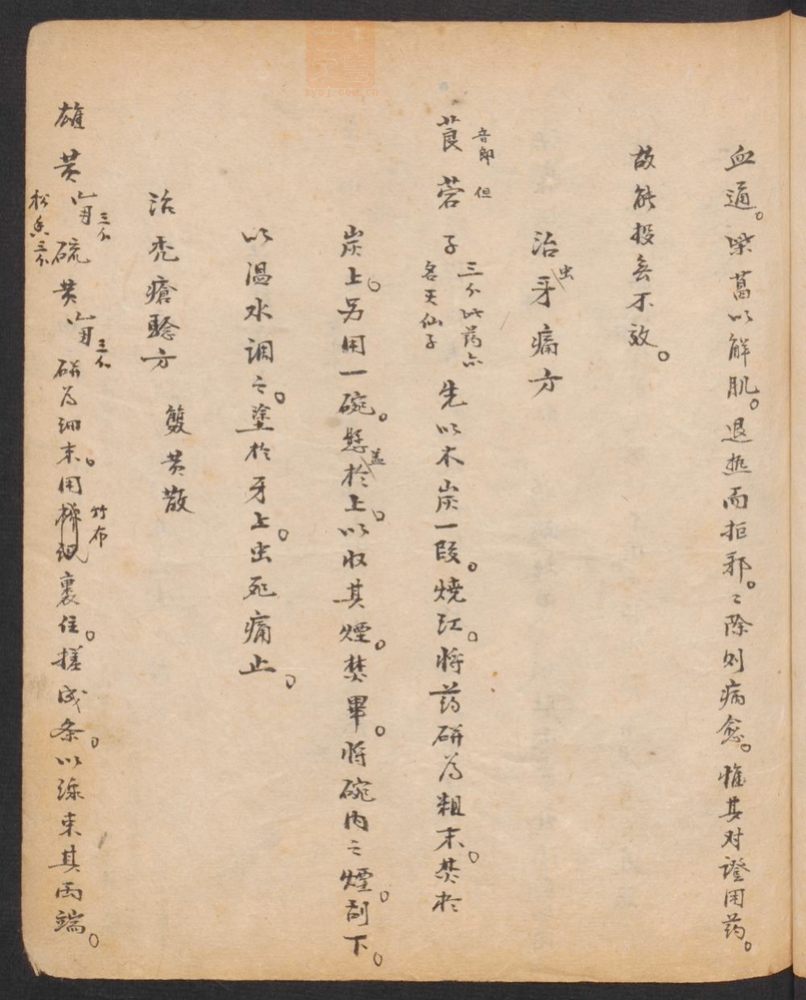 血通。柴葛以解肌。退热而拒邪。〻除则病愈。惟其对證用药。
故能投無不效。
治虫牙痛方
莨菪子 音郎 但 三个 此药亦名天仙子 先以木炭一段。燒红。将药研为粗末。焚於
炭上。另用一碗。盖於上。以收其煙。焚畢。将碗内之煙。刮下。
以温水调之。塗於牙上。虫死痛止。
治秃瘡验方 雙黄散
雄黄 三个 硫黄 三个 松香三个 研为细末。用竹布裹住。搓成条。以綫束其両端。